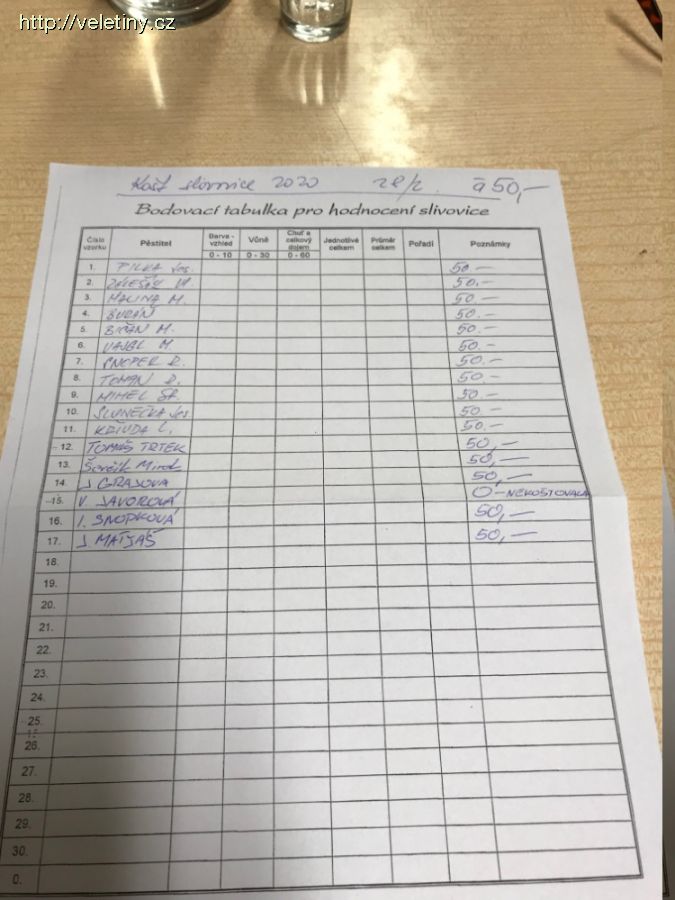 http://veletiny.cz
Košt slivovice 2020 28/2. à 50,—
Bodovací tabulka pro hodnocení slivovice
Číslo vzorku Pěstitel Barva - vzhled Vůně Chuť a celkový dojem Jednotlivě celkem Průměr celkem Pořadí Poznámky
0 - 10 0 - 30 0 - 60
1. PILKA Jos. 50.—
2. 50.—
3. MALINA M. 50.—
4. BURÁŇ 50.—
5. M. 50.—
6. VAJGL M 50.—
7. SNOPEK R. 50.—
8. TOMAN R. 50.—
9. 50.—
10. SLUNEČKA Jos 50.—
11. KŘIVDA L. 50.—
12. TOMÁŠ TRTEK 50,—
13. Ševčík Mirek 50,—
14. J GRAJOVA 50,—
15. V. JAVOROVÁ 0-NEKOŠTOVALA
16. I. SNOPKOVÁ 50,—
17. J. MATJAŠ 50,—
18.
19.
20.
21.
22.
23.
24.
25.
26.
27.
28.
29.
30.
0.